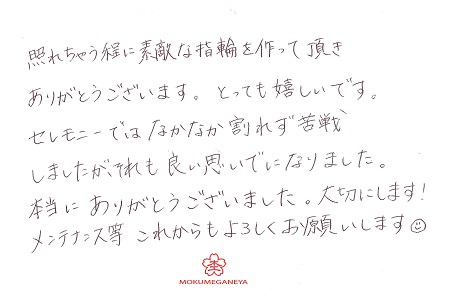 照れちゃう程に素敵な指輪を作って頂き
ありがとうございます。とっても嬉しいです。
セレモニーではなかなか割れず苦戦
しましたが、それも良い思いでになりました。
本当にありがとうございました。大切にします!
メンテナンス等これからもよろしくお願いします☺
MOKUMEGANEYA